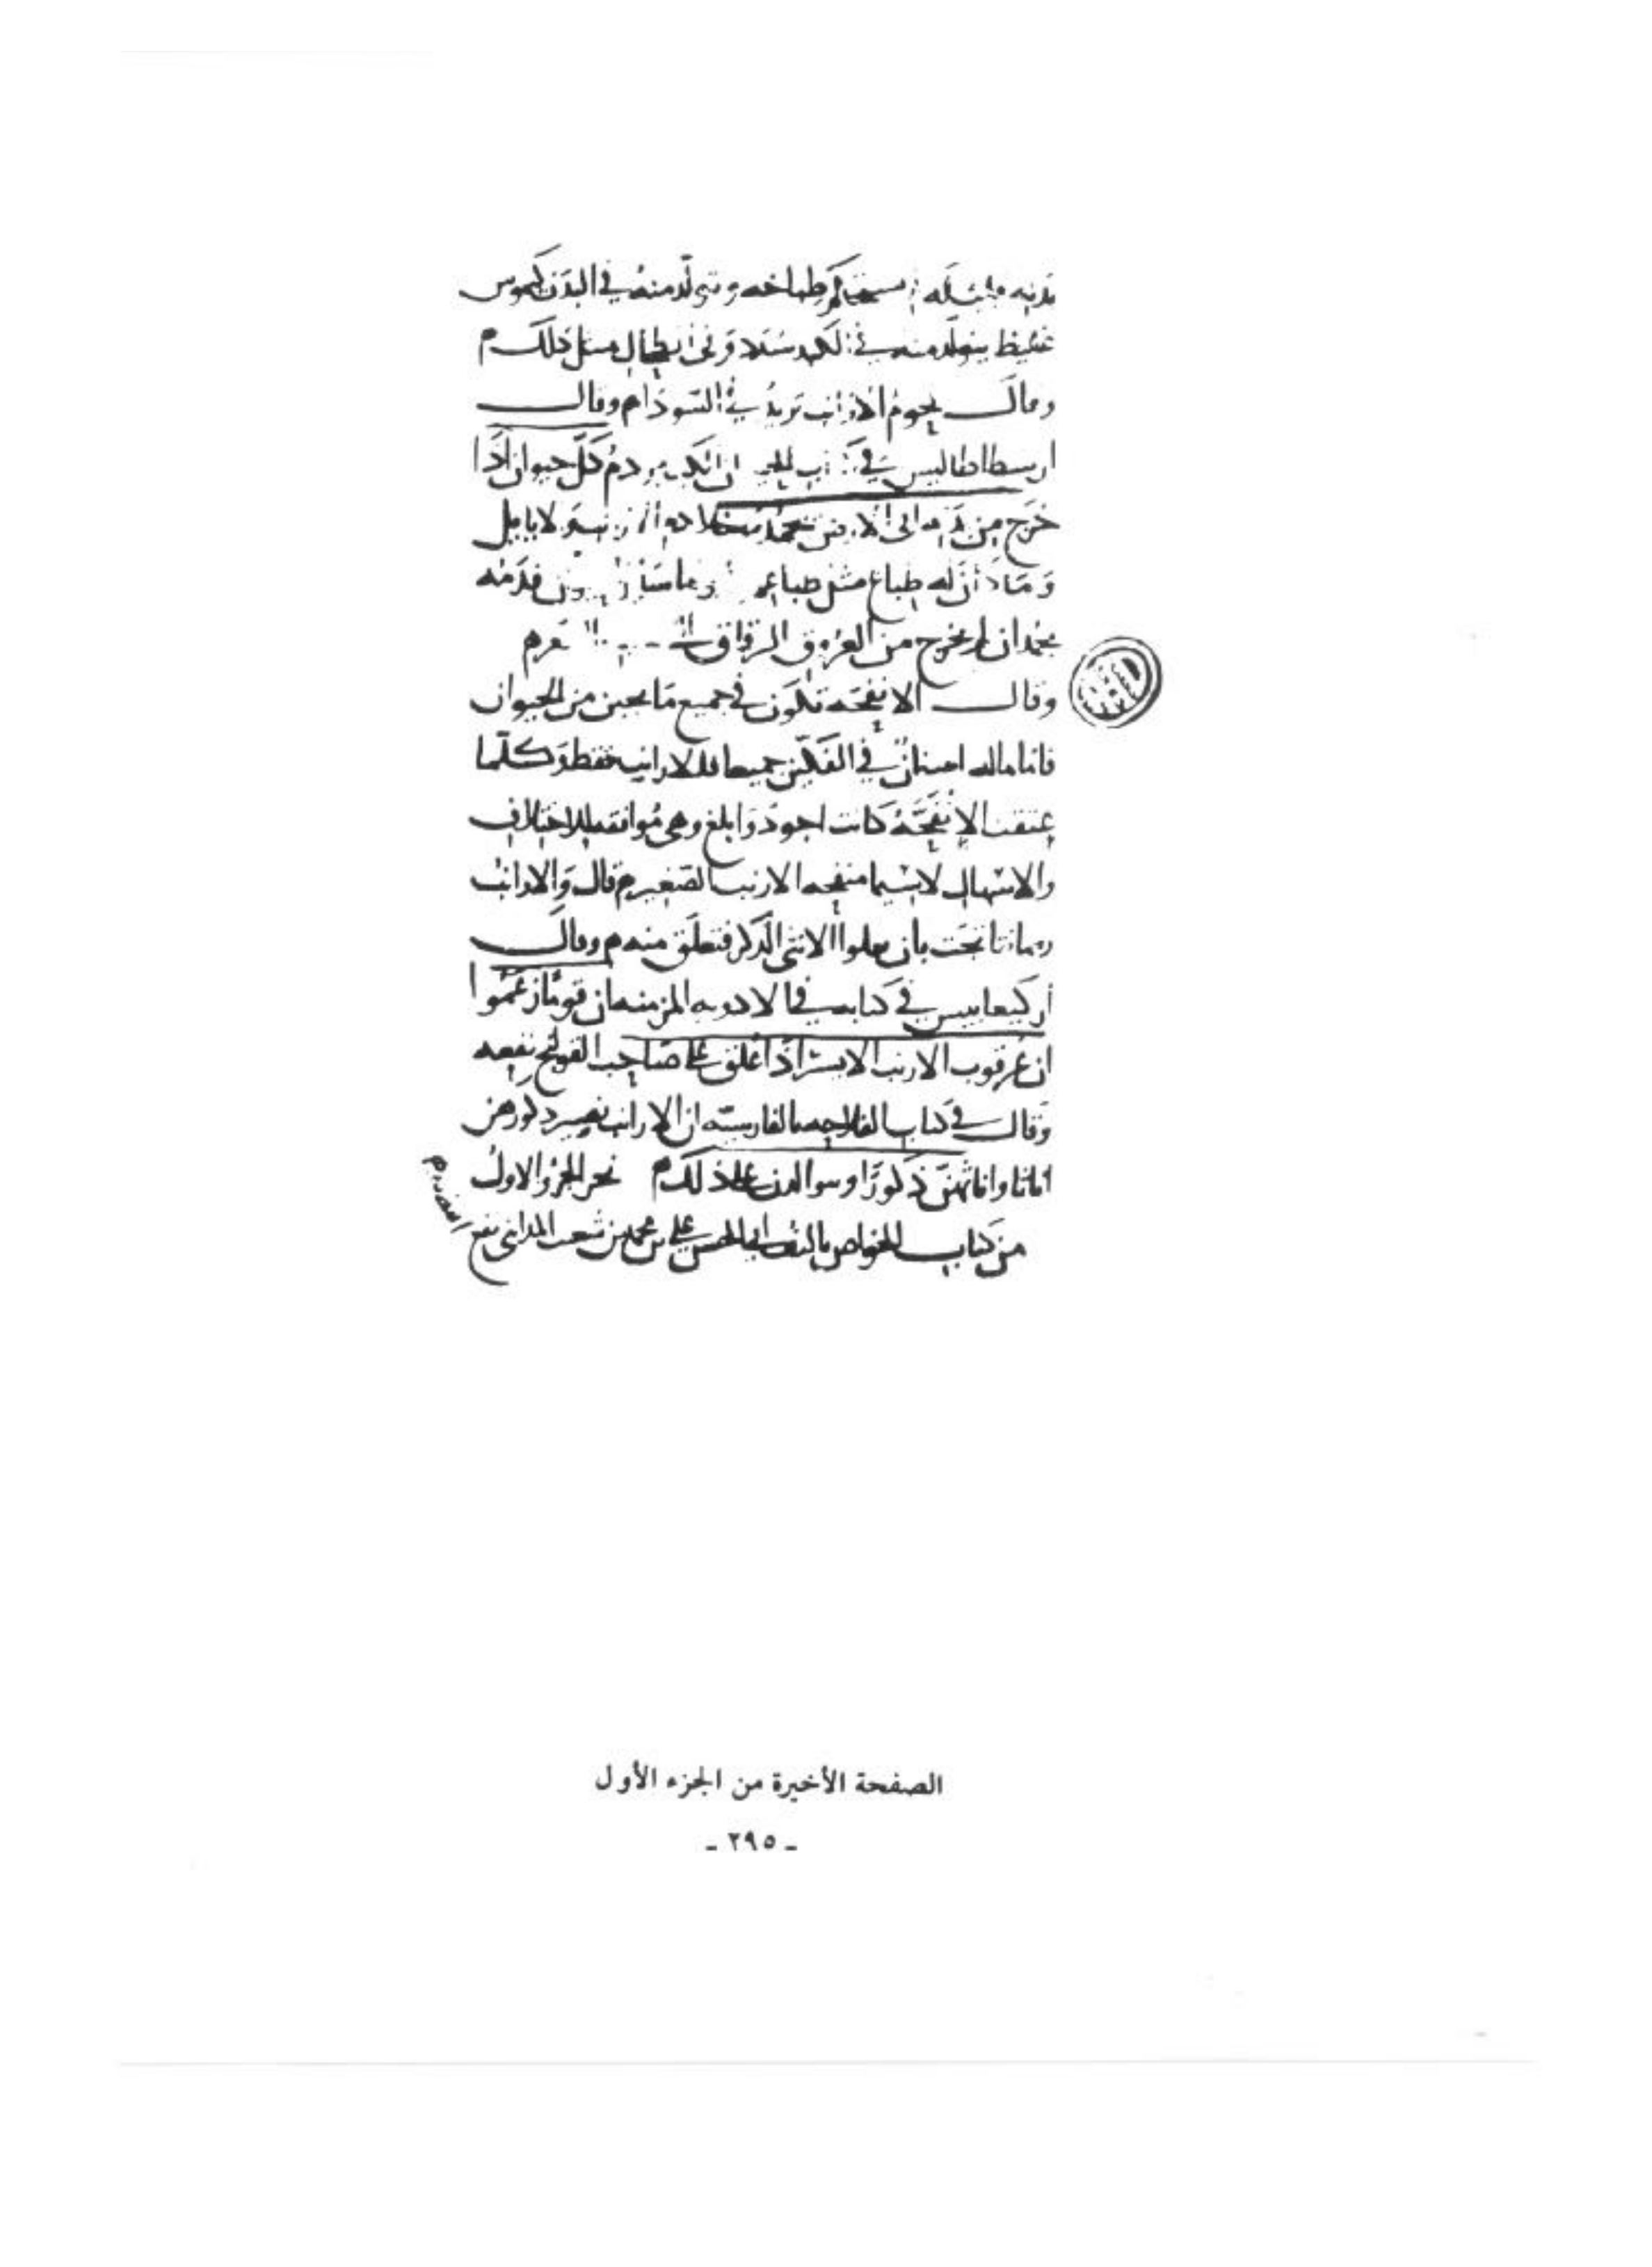 طباخه ويتولد منه في البدن كيموس
غليظ يتولد منه في الكبد سددا وفي الطحال مثل ذلك م
وقال لحوم الارانب تزيد في السوداء م وقال
ارسطاطاليس في ان دم كل حيوان اذا
خرج من الى الارض يجمد ما خلا دم
له طباع مثل طباع فدمه
يجمد ان لم يخرج من العروق الرقاق
وقال الانفحة تكون في جميع ما يجبن من الحيوان
فاما ماله اسنان في الفكين جميعا فللارانب فقط وكلما
عتقت الانفحة كانت اجود وابلغ وهي موافقة للاختلاف
والاسهال لاسيما منفحه الارنب الصغير م قال والارانب
ربما نتاتجت بان يعلوا الانثى الذكر فتعلق منه م وقال
أركيعابيس في كتابه في الادويه المزمنه ان قوما زعموا
ان عرقوب الارنب الايسر اذا علق على صاحب القولنج نفعه
وقال في كتاب الفلاحه بالفارسيه ان الارانب تصير ذكورهن
اناثا واناثهن ذكورا على ذلك م نجز الجزؤ الاول
من كتاب الخواص تاليف ابي الحسن علي بن محمد بن شعيب المدايني
الصفحة الأخيرة من الجزء الأول
- ٢٩٥ -